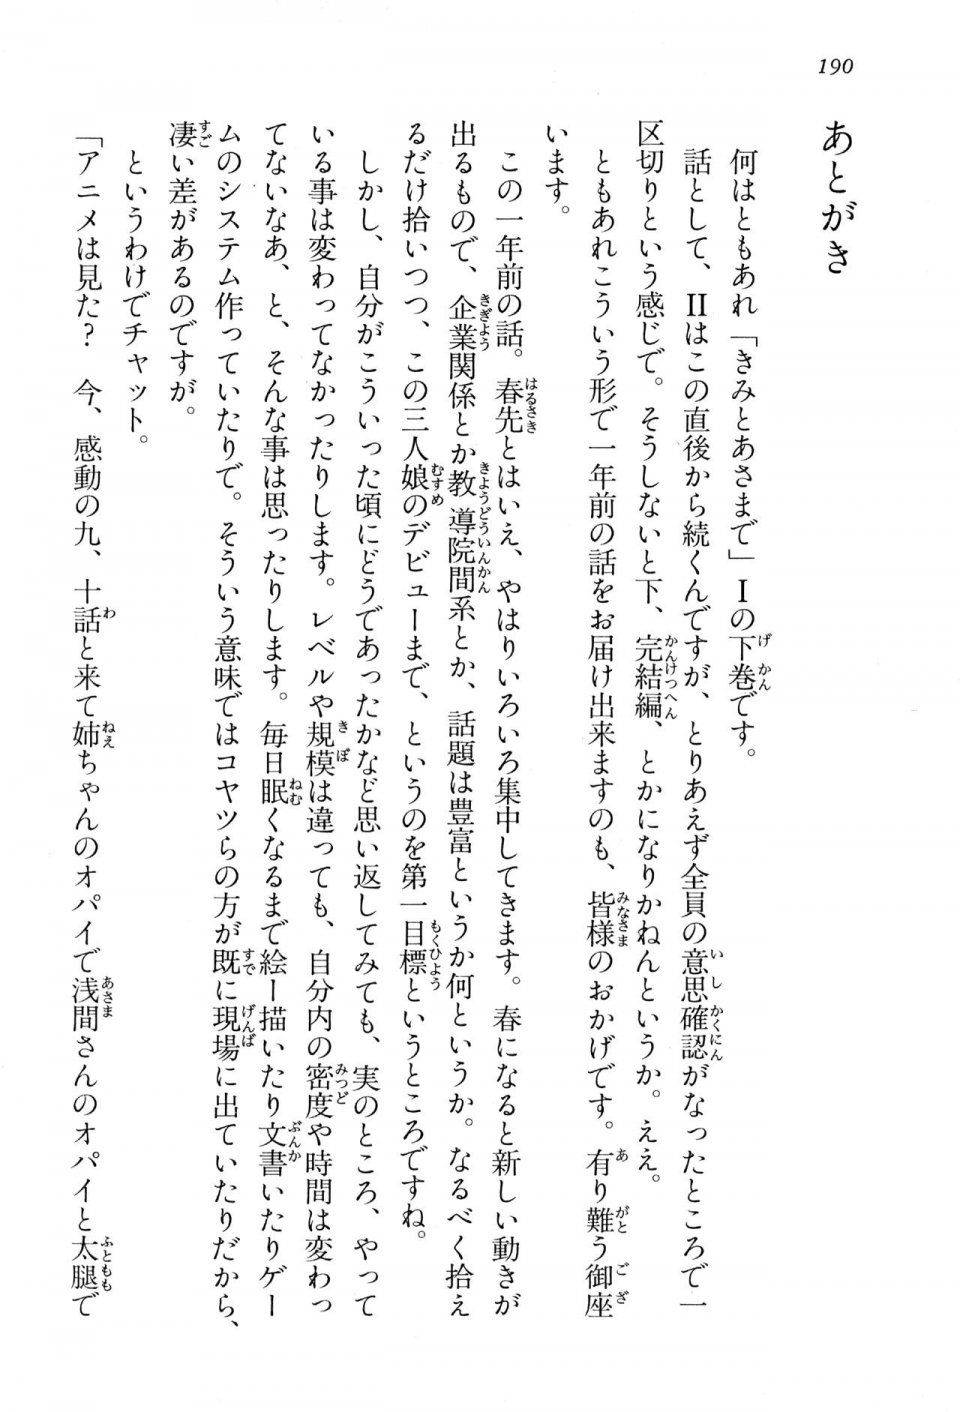 190
あとがき
何はともあれ「きみとあさまで」Ⅰの下巻です。
話として、Ⅱはこの直後から続くんですが、とりあえず全員の意思確認がなったところで一
区切りという感じで。そうしないと下、完結編、とかになりかねんというか。ええ。
ともあれこういう形で一年前の話をお届け出来ますのも、皆様のおかげです。有り難う御座
います。
この一年前の話。春先とはいえ、やはりいろいろ集中してきます。春になると新しい動きが
出るもので、企業関係とか教導院間系とか、話題は豊富というか何というか。なるべく拾え
るだけ拾いつつ、この三人娘のデビューまで、というのを第一目標というところですね。
しかし、自分がこういった頃にどうであったかなど思い返してみても、実のところ、やって
いる事は変わってなかったりします。レベルや規模は違っても、自分内の密度や時間は変わっ
てないなあ、と、そんな事は思ったりします。毎日眠くなるまで絵ー描いたり文書いたりゲー
ムのシステム作っていたりで。そういう意味ではコヤツらの方が既に現場に出ていたりだから、
凄い差があるのですが。
というわけでチャット。
「アニメは見た？　今、感動の九、十話と来て姉ちゃんのオパイで浅間さんのオパイと太腿で